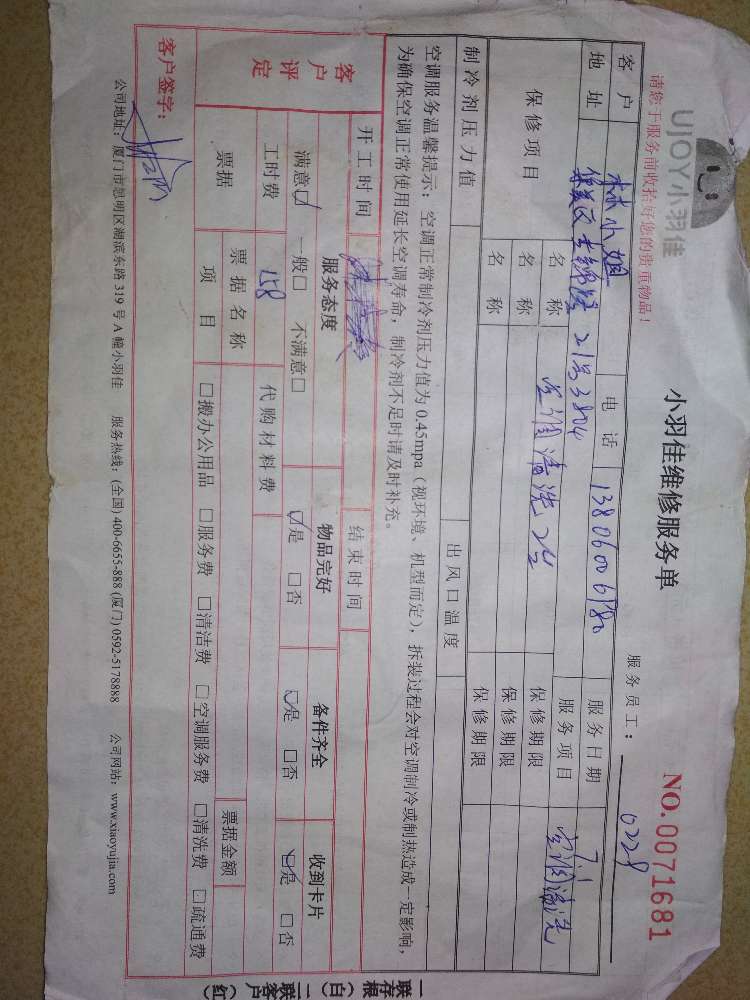 UJOY小羽佳
小羽佳维修服务单
NO.0071681
请您于服务前收拾好您的贵重物品！
服务员工： 0228
客户 林小姐 电话 13806006780 服务日期 7.1
地址 21号3804 服务项目 空调清洗
保修项目 名称 空调清洗2台 保修期限
名称 保修期限
名称 保修期限
制冷剂压力值 出风口温度
空调服务温馨提示：空调正常制冷剂压力值为0.45mpa（视环境、机型而定），拆装过程会对空调制冷或制热造成一定影响，
为确保空调正常使用延长空调寿命，制冷剂不足时请及时补充。
开工时间 结束时间
客户评定 服务态度 物品完好 备件齐全 收到卡片
满意☑ 一般□ 不满意□ ☑是 □否 ☑是 □否 ☑是 □否
工时费 158 代购材料费
票据 票据名称 票据金额
项目 □搬办公用品 □服务费 □清洁费 □空调服务费 □清洗费 □疏通费
客户签字：
公司地址：厦门市思明区湖滨东路319号A幢小羽佳 服务热线：(全国) 400-6655-888 (厦门) 0592-5178888 公司网站：www.xiaoyujia.com
一联存根（白）二联客户（红）